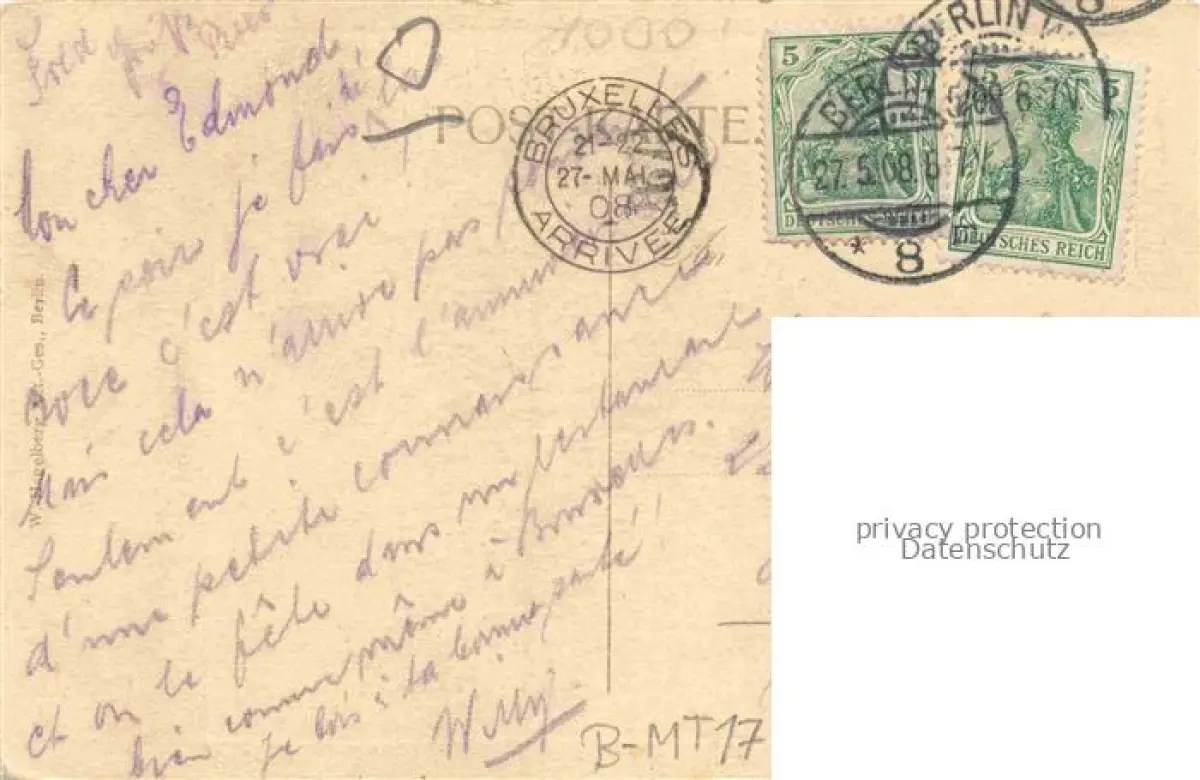 1000
POSTKARTE.
BRUXELLES
21-22
27-MAI
08
ARRIVÉE
5
DEUTSCHES REICH
BERLIN W
27.5.08.6-7N
* 8
5
DEUTSCHES REICH
BERLIN W
8
Mon cher Edmond,
Le soir je fais la
noce c'est vrai
Mais cela n'arrive pas
Seulement c'est l'anniversaire
d'une petite connaissance
et on le fête dans un restaurant
bien comme même à Bordeaux.
je bois à ta bonne santé!!
Willy
B-MT17
Berlin.
privacy protection
Datenschutz